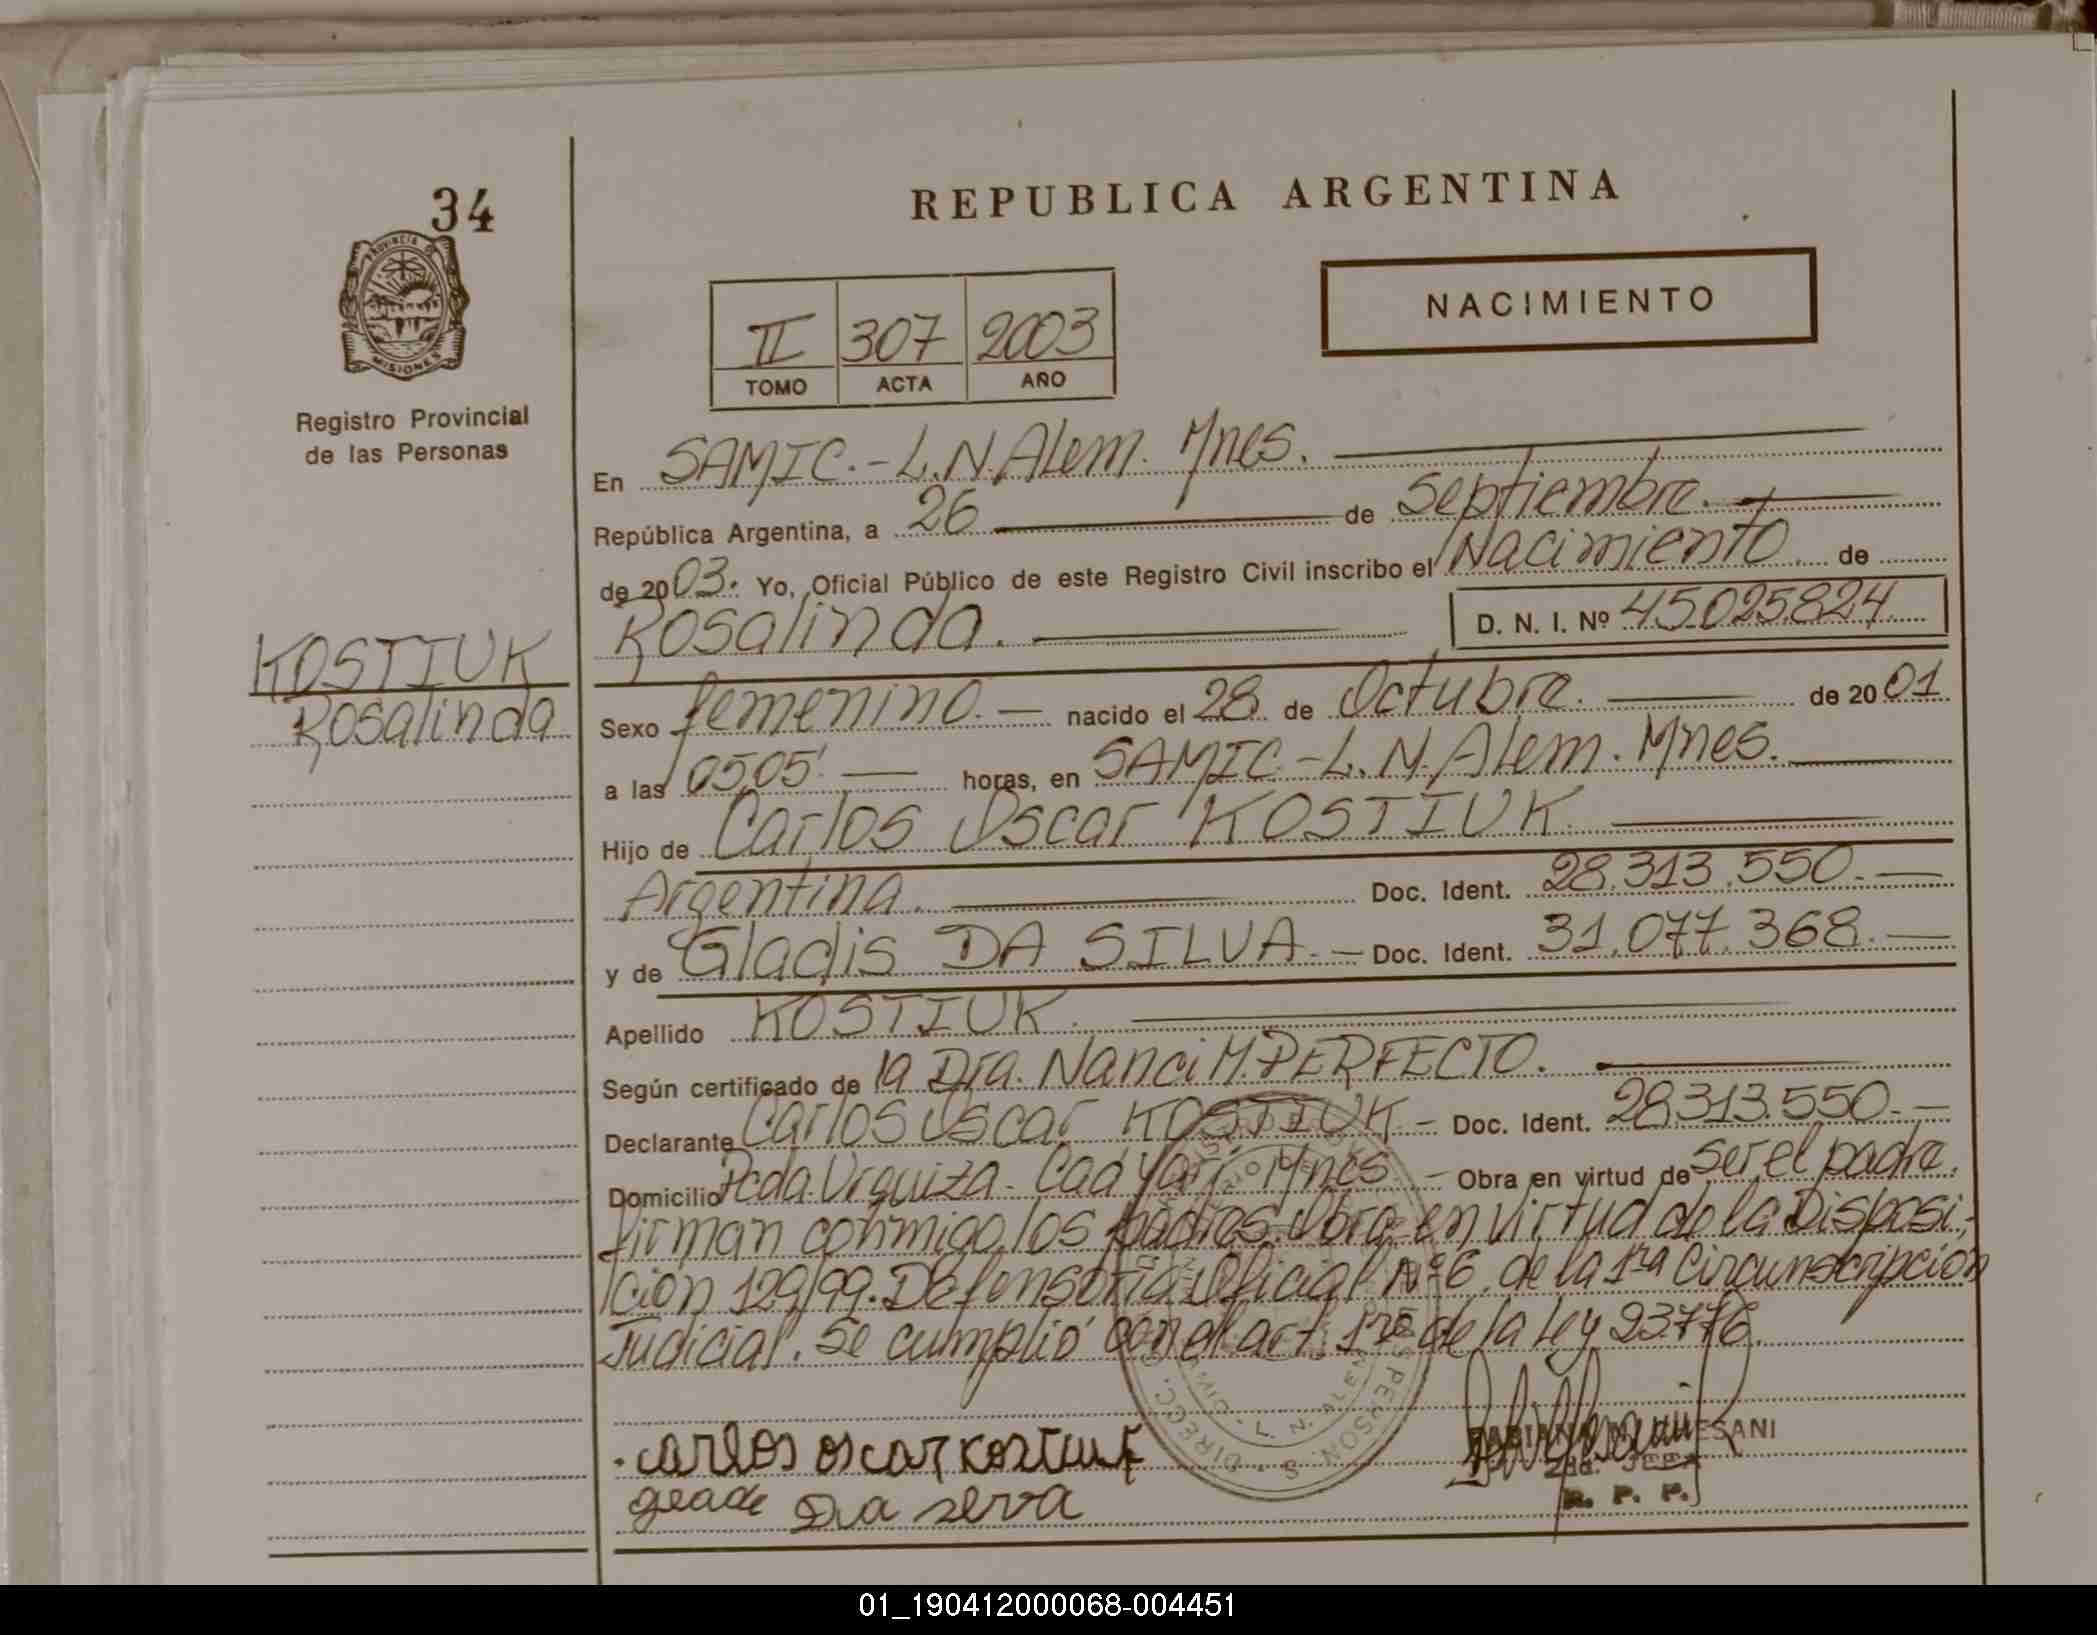 34
REPUBLICA ARGENTINA
PROVINCIA DE
MISIONES
Registro Provincial
de las Personas
II 307 2003
TOMO ACTA AÑO
NACIMIENTO
En SAMIC.- L.N. Alem. Mnes.
República Argentina, a 26 de Septiembre.
de 2003. Yo, Oficial Público de este Registro Civil inscribo el Nacimiento de
Rosalinda. D. N. I. Nº 45025824
KOSTIUK
Rosalinda
Sexo femenino. nacido el 28 de Octubre. de 2001
a las 05,05' horas, en SAMIC - L. N. Alem. Mnes.
Hijo de Carlos Oscar KOSTIUK
Argentina. Doc. Ident. 28.313.550.-
y de Gladis DA SILVA.- Doc. Ident. 31.077.368.-
Apellido KOSTIUK.
Según certificado de la Dra. Nanci M. PERFECTO.
Declarante Carlos Oscar KOSTIUK - Doc. Ident. 28.313.550.-
Domicilio Pcda. Urquiza - Mnes - Obra en virtud de ser el padre.
firman conmigo los padres. Obra en virtud de la Disposi-
ción 129/99. Defensoría Oficial Nº 6 de la 1ra Circunscripción
Judicial. Se cumplió con el art. 1ro de la Ley 23776.
carlos oscar Kostiuk
Da selva
2da. JEFA
R. P. P.
01_190412000068-004451